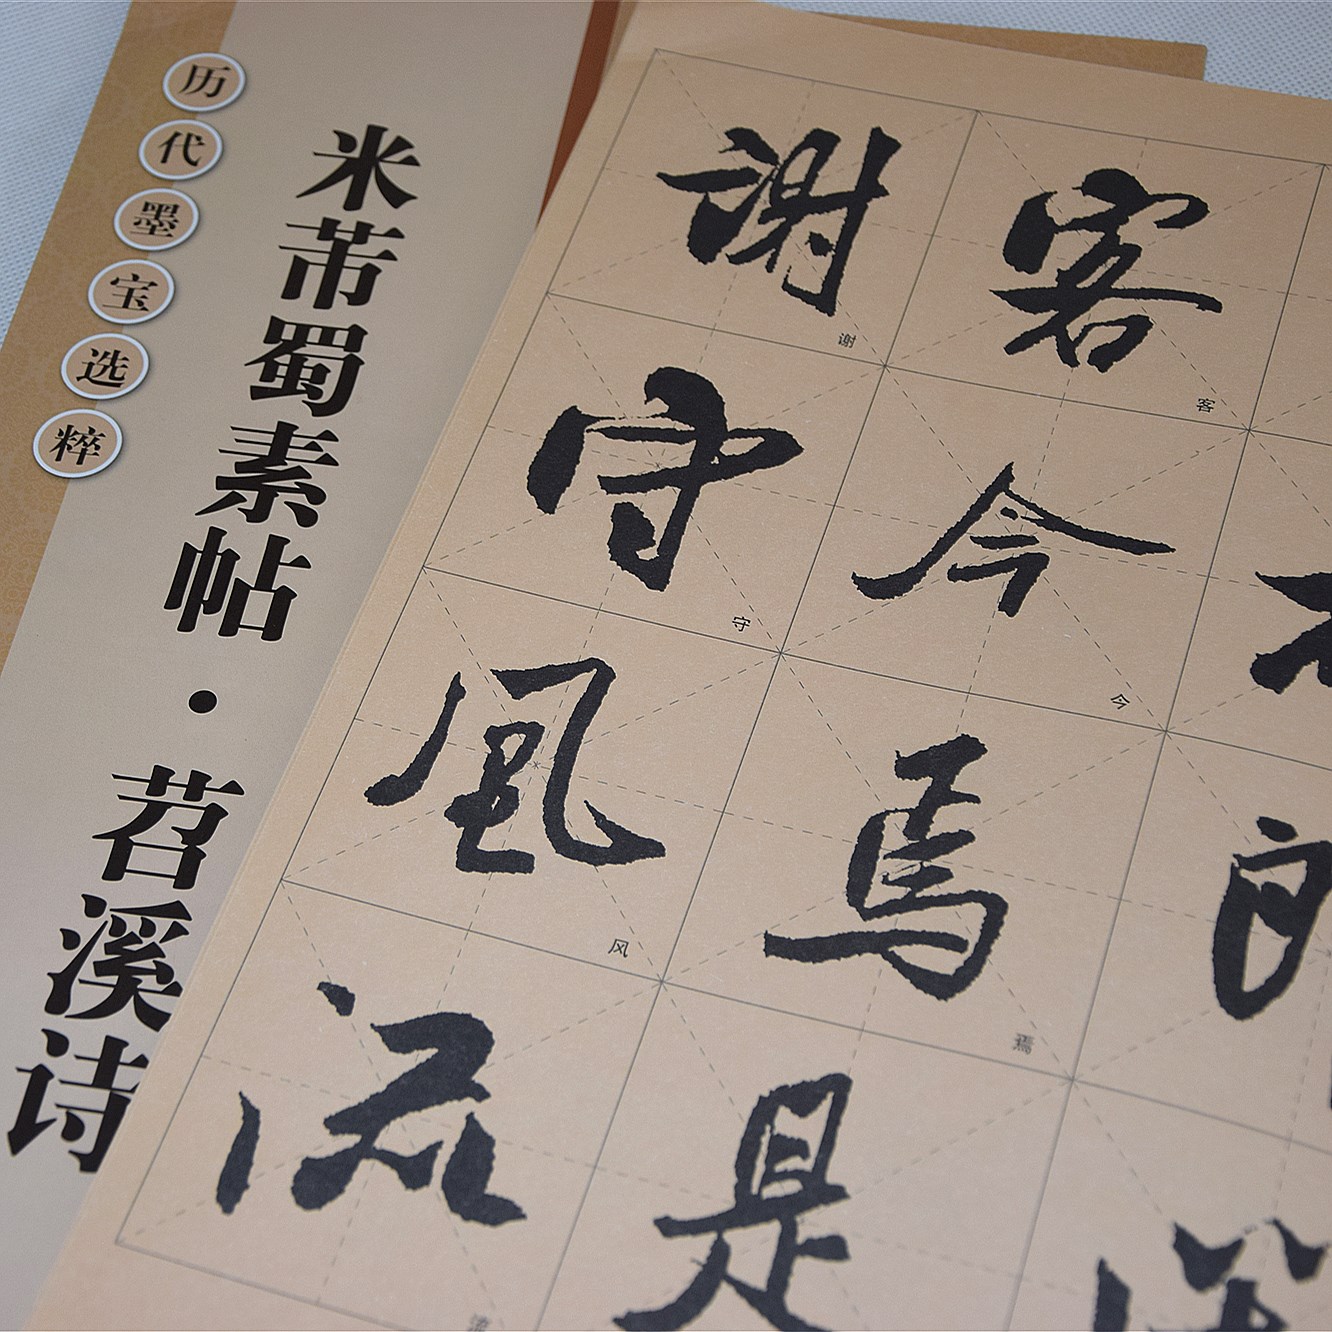 历代墨宝选粹
米芾蜀素帖·苕溪诗
客今焉是
客
今
焉
謝守風流
谢
守
风
流